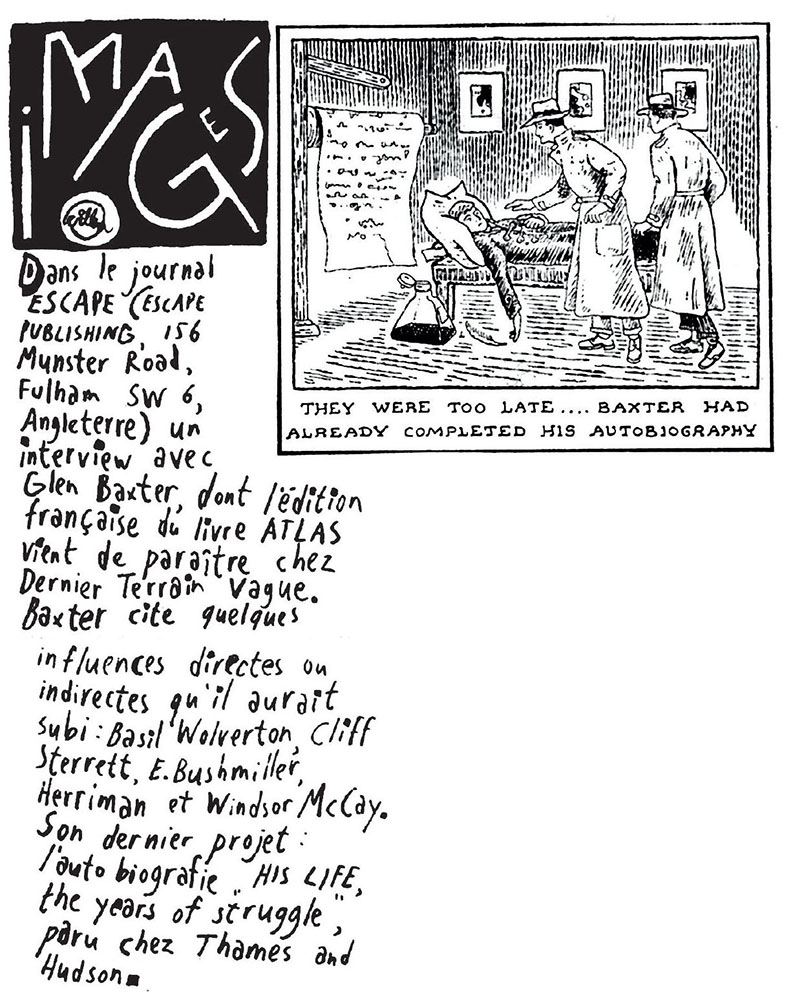 iMAGES
Willem
THEY WERE TOO LATE.... BAXTER HAD
ALREADY COMPLETED HIS AUTOBIOGRAPHY
Dans le journal
ESCAPE (ESCAPE
PUBLISHING, 156
Munster Road,
Fulham SW 6,
Angleterre) un
interview avec
Glen Baxter, dont l'édition
française du livre ATLAS
vient de paraître chez
Dernier Terrain Vague.
Baxter cite quelques
influences directes ou
indirectes qu'il aurait
subi : Basil Wolverton, Cliff
Sterrett, E. Bushmiller,
Herriman et Windsor McCay.
Son dernier projet :
l'auto biografie „HIS LIFE,
the years of struggle",
paru chez Thames and
Hudson■